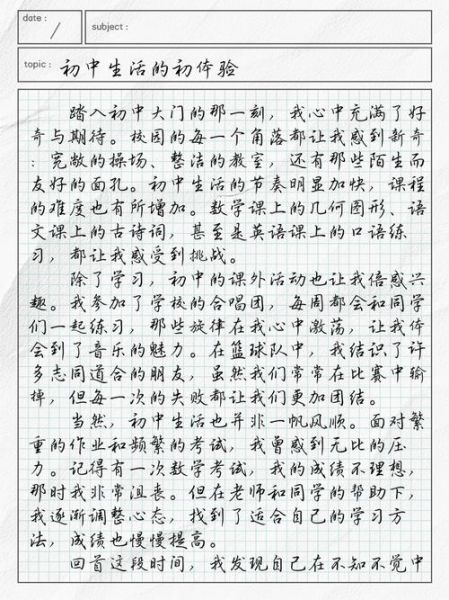 date:
subject:
topic: 初中生活的初体验
踏入初中大门的那一刻，我心中充满了好
奇与期待。校园的每一个角落都让我感到新奇
：宽敞的操场、整洁的教室，还有那些陌生而
友好的面孔。初中生活的节奏明显加快，课程
的难度也有所增加。数学课上的几何图形、语
文课上的古诗词，甚至是英语课上的口语练
习，都让我感受到挑战。
除了学习，初中的课外活动也让我倍感兴
趣。我参加了学校的合唱团，每周都会和同学
们一起练习，那些旋律在我心中激荡，让我体
会到了音乐的魅力。在篮球队中，我结识了许
多志同道合的朋友，虽然我们常常在比赛中输
掉，但每一次的失败都让我们更加团结。
当然，初中生活也并非一帆风顺。面对繁
重的作业和频繁的考试，我曾感到无比的压
力。记得有一次数学考试，我的成绩不理想，
那时我非常沮丧。但在老师和同学的帮助下，
我逐渐调整心态，找到了适合自己的学习方
法，成绩也慢慢提高。
回首这段时间，我发现自己在不知不觉中